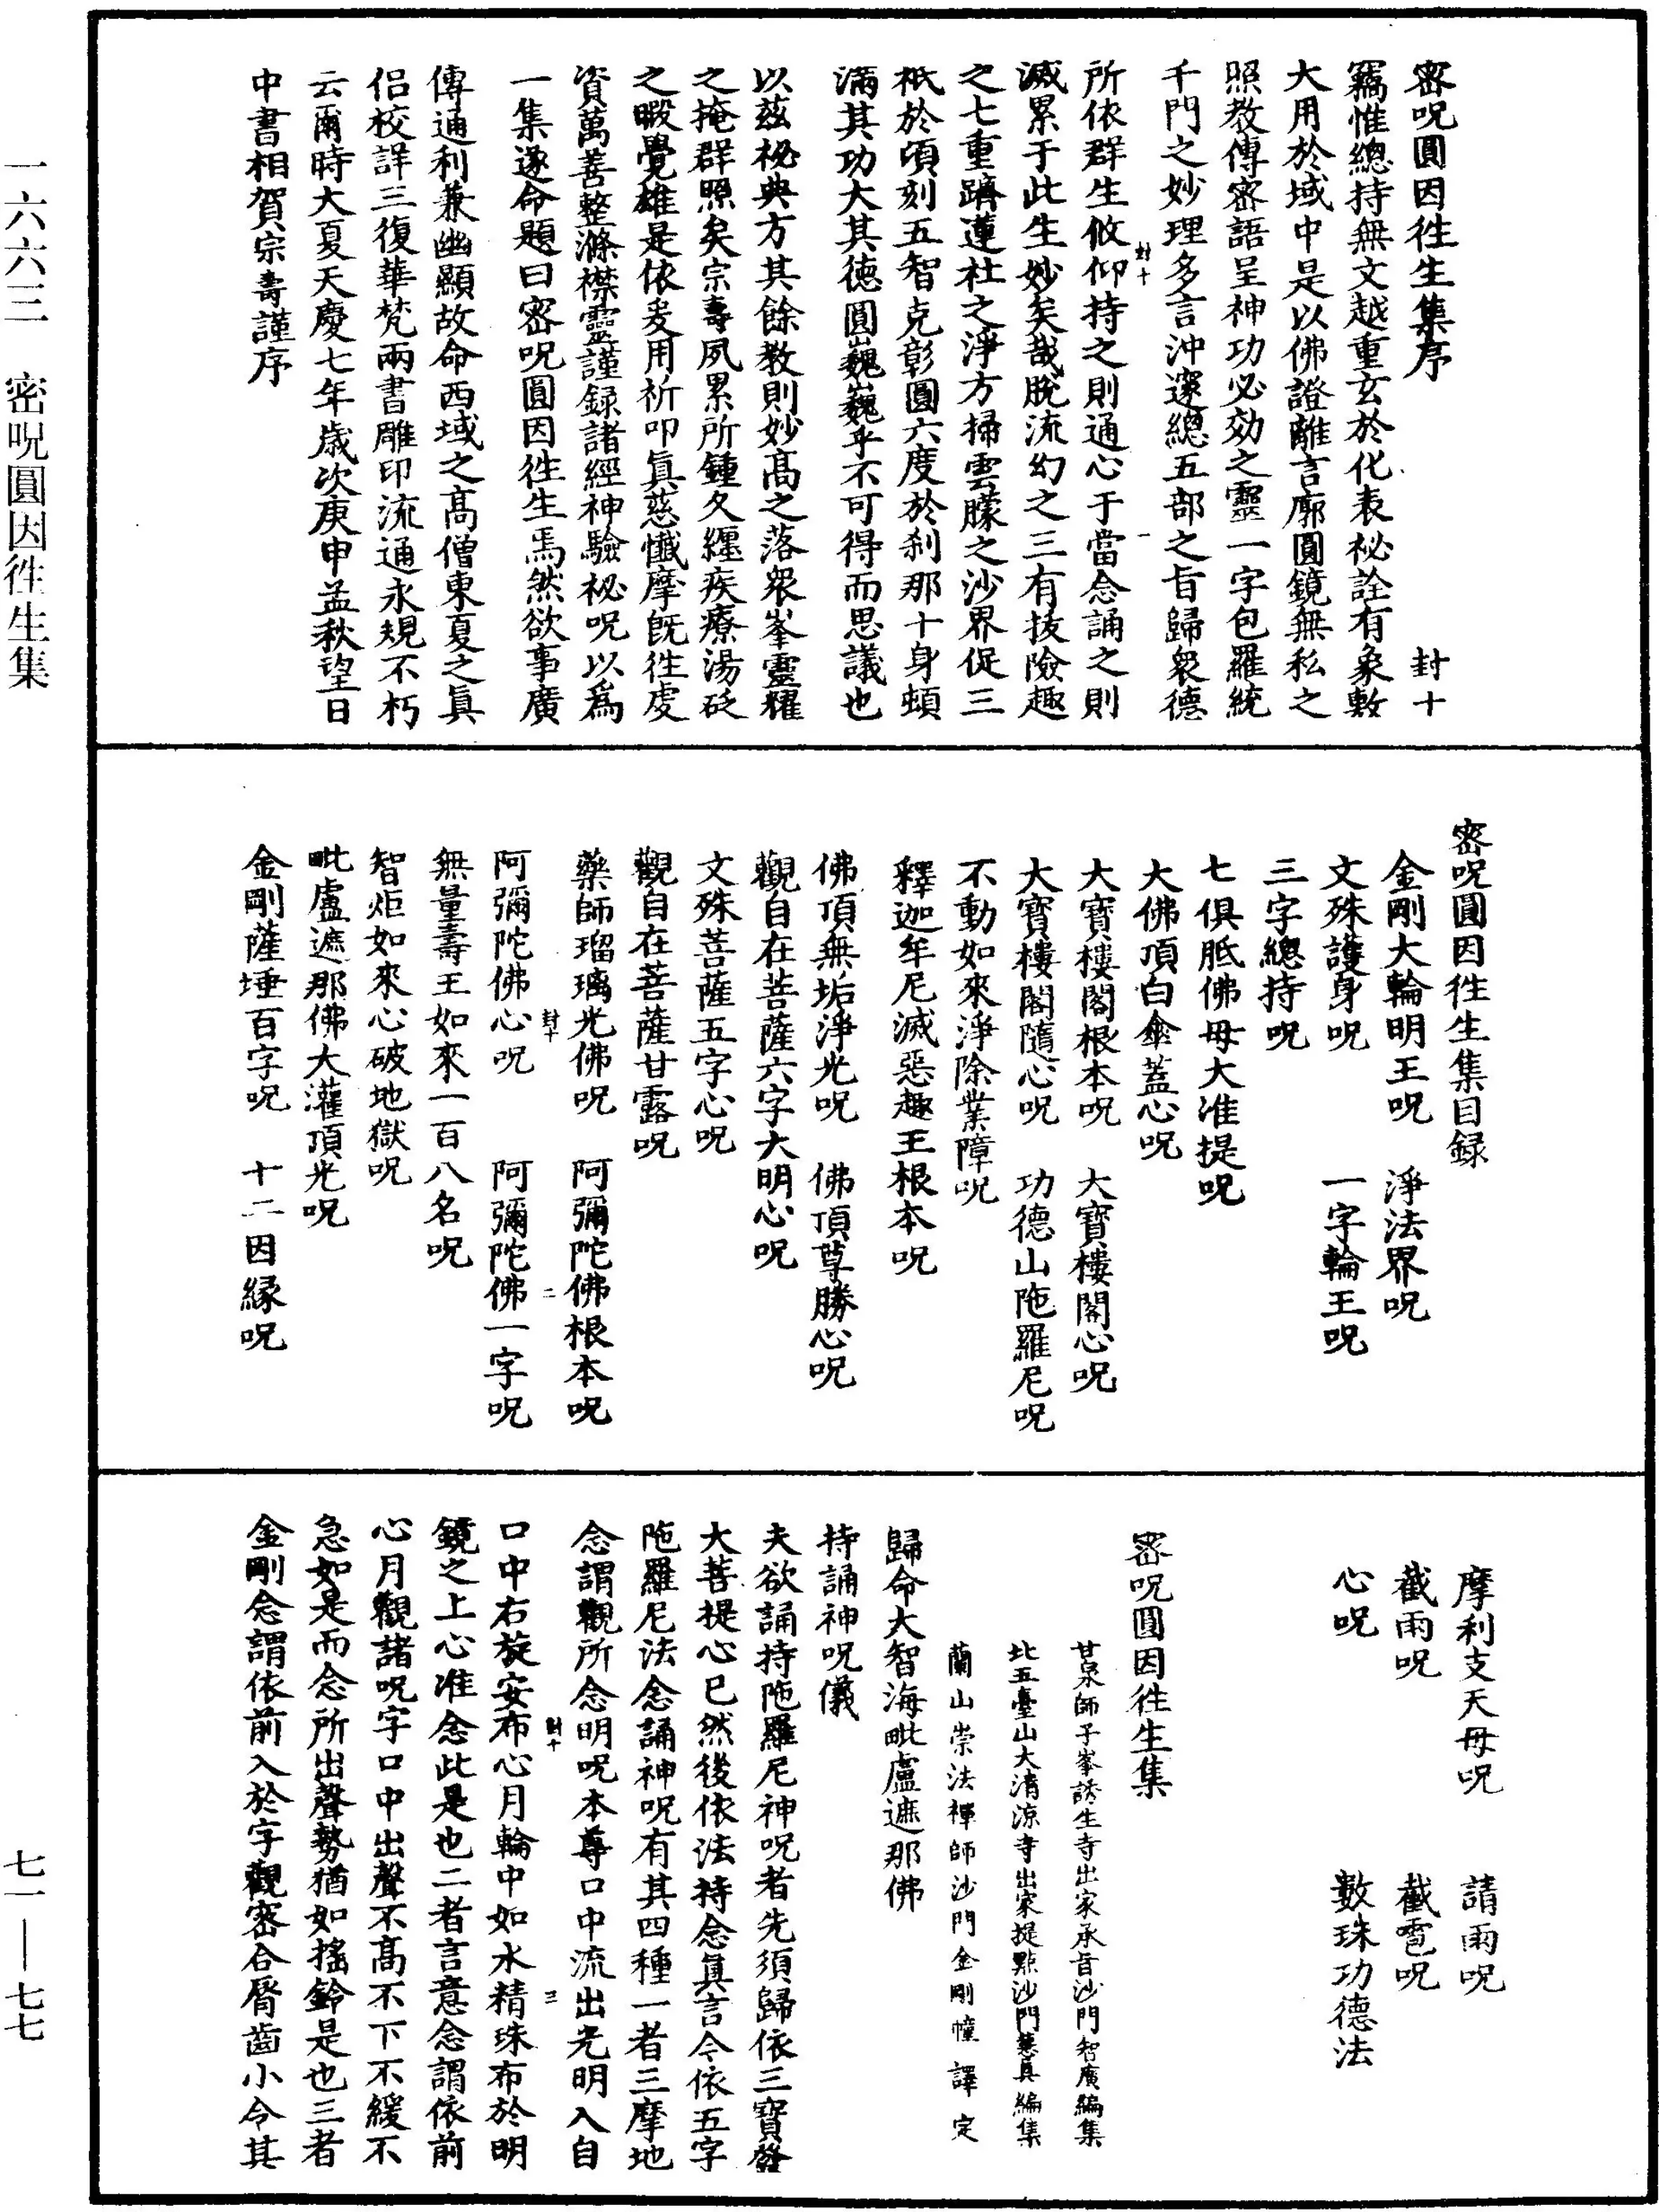 密呪圓因徃生集序　封十
竊惟總持無文越重玄於化表祕詮有象敷
大用於域中是以佛證離言廓圓鏡無私之
照教傳密語呈神功必效之靈一字包羅統
千門之妙理多言沖邃總五部之旨歸衆德
所依群生攸仰持之則通心于當念誦之則
滅累于此生妙矣哉脫流幻之三有拔險趣
之七重躋蓮社之淨方掃雲朦之沙界促三
祇於頃刻五智克彰圓六度於刹那十身頓
滿其功大其德圓巍巍乎不可得而思議也
以茲祕典方其餘教則妙高之落衆峯靈耀
之掩群照矣宗壽夙累所鍾久纏疾療湯砭
之暇覺雄是依爰用祈叩眞慈懺摩旣徃虔
資萬善整滌襟靈謹録諸經神驗祕呪以爲
一集遂命題曰密呪圓因徃生焉然欲事廣
傳通利兼幽顯故命西域之高僧東夏之眞
侶校詳三復華梵兩書雕印流通永規不朽
云爾時大夏天慶七年歳次庚申孟秋望日
中書相賀宗壽謹序
封十　一
密呪圓因徃生集目録
金剛大輪明王呪　淨法界呪
文殊護身呪　一字輪王呪
三字總持呪
七俱胝佛母大准提呪
大佛頂白傘蓋心呪
大寶樓閣根本呪　大寶樓閣心呪
大寶樓閣隨心呪　功德山陁羅尼呪
不動如來淨除業障呪
釋迦牟尼滅惡趣王根本呪
佛頂無垢淨光呪　佛頂尊勝心呪
觀自在菩薩六字大明心呪
文殊菩薩五字心呪
觀自在菩薩甘露呪
藥師瑠璃光佛呪　阿彌陀佛根本呪
封十　二
阿彌陀佛心呪　阿彌陀佛一字呪
無量壽王如來一百八名呪
智炬如來心破地獄呪
毗盧遮那佛大灌頂光呪
金剛薩埵百字呪　十二因緣呪
摩利支天母呪　請雨呪
截雨呪　截雹呪
心呪　數珠功德法
密呪圓因徃生集
甘泉師子峯誘生寺出家承旨沙門智廣編集
北五臺山大清涼寺出家提點沙門慧真編集
蘭山崇法禪師沙門金剛幢譯定
歸命大智海毗盧遮那佛
持誦神呪儀
夫欲誦持陁羅尼神呪者先須歸依三寶發
大菩提心已然後依法持念眞言今依五字
陁羅尼法念誦神呪有其四種一者三摩地
念謂觀所念明呪本尊口中流出光明入自
封十　三
口中右旋安布心月輪中如水精珠布於明
鏡之上心准念此是也二者言意念謂依前
心月觀諸呪字口中出聲不高不下不緩不
急如是而念所出聲勢猶如搖鈴是也三者
金剛念謂依前入於字觀密合脣齒小令其
一六六三　密呪圓因徃生集
七一——七七